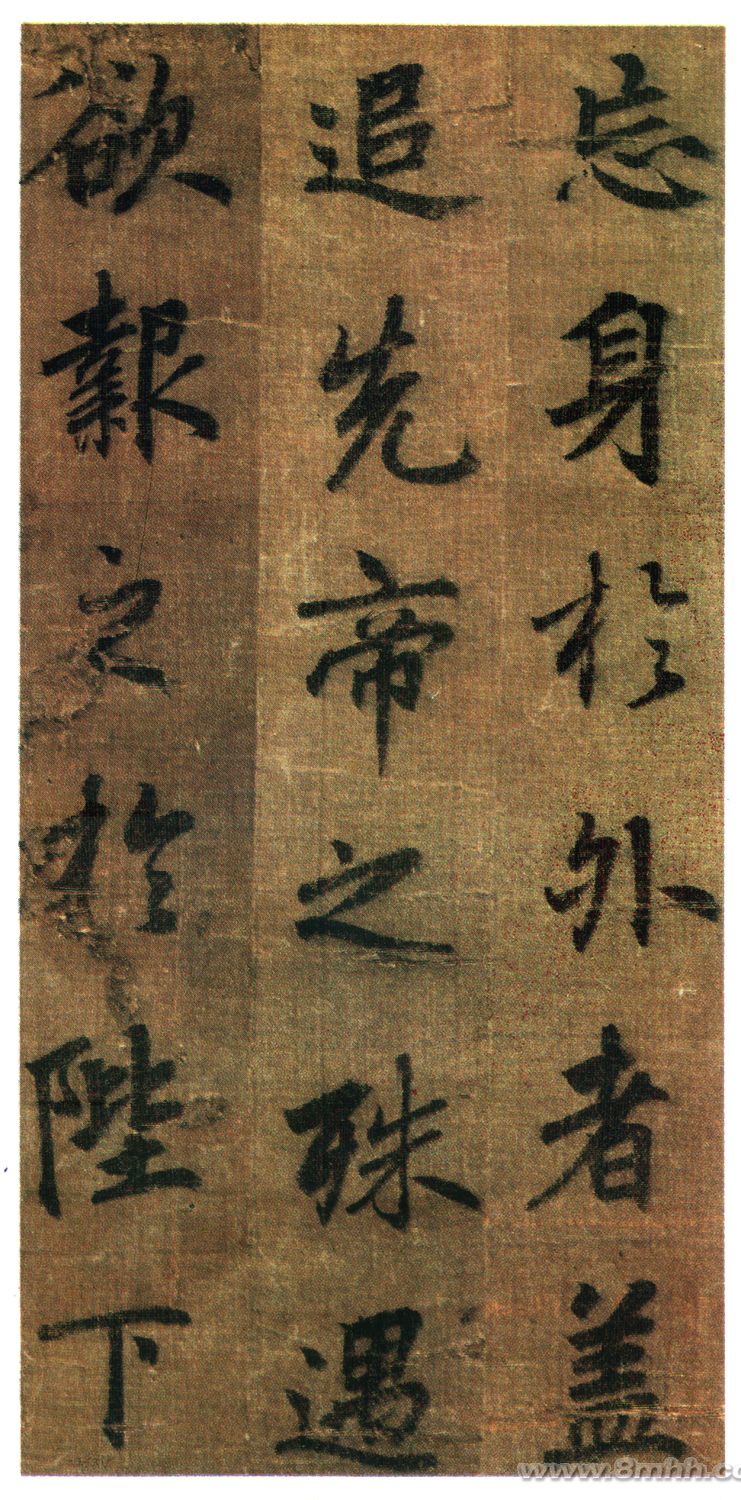 忘身於外者盖
追先帝之殊遇
欲報之於陛下
www.8mhh.co